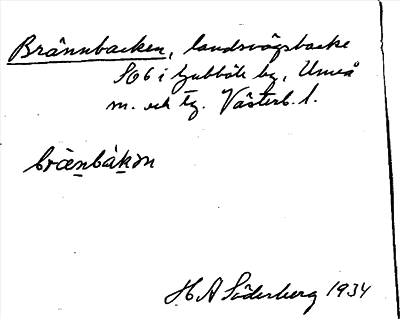 Brännbacken, landsvägsbacke
S06 i Gubböle by, Umeå
m. och tg. Västerb. l.
bræ̀nbàkən
H A Söderberg 1934